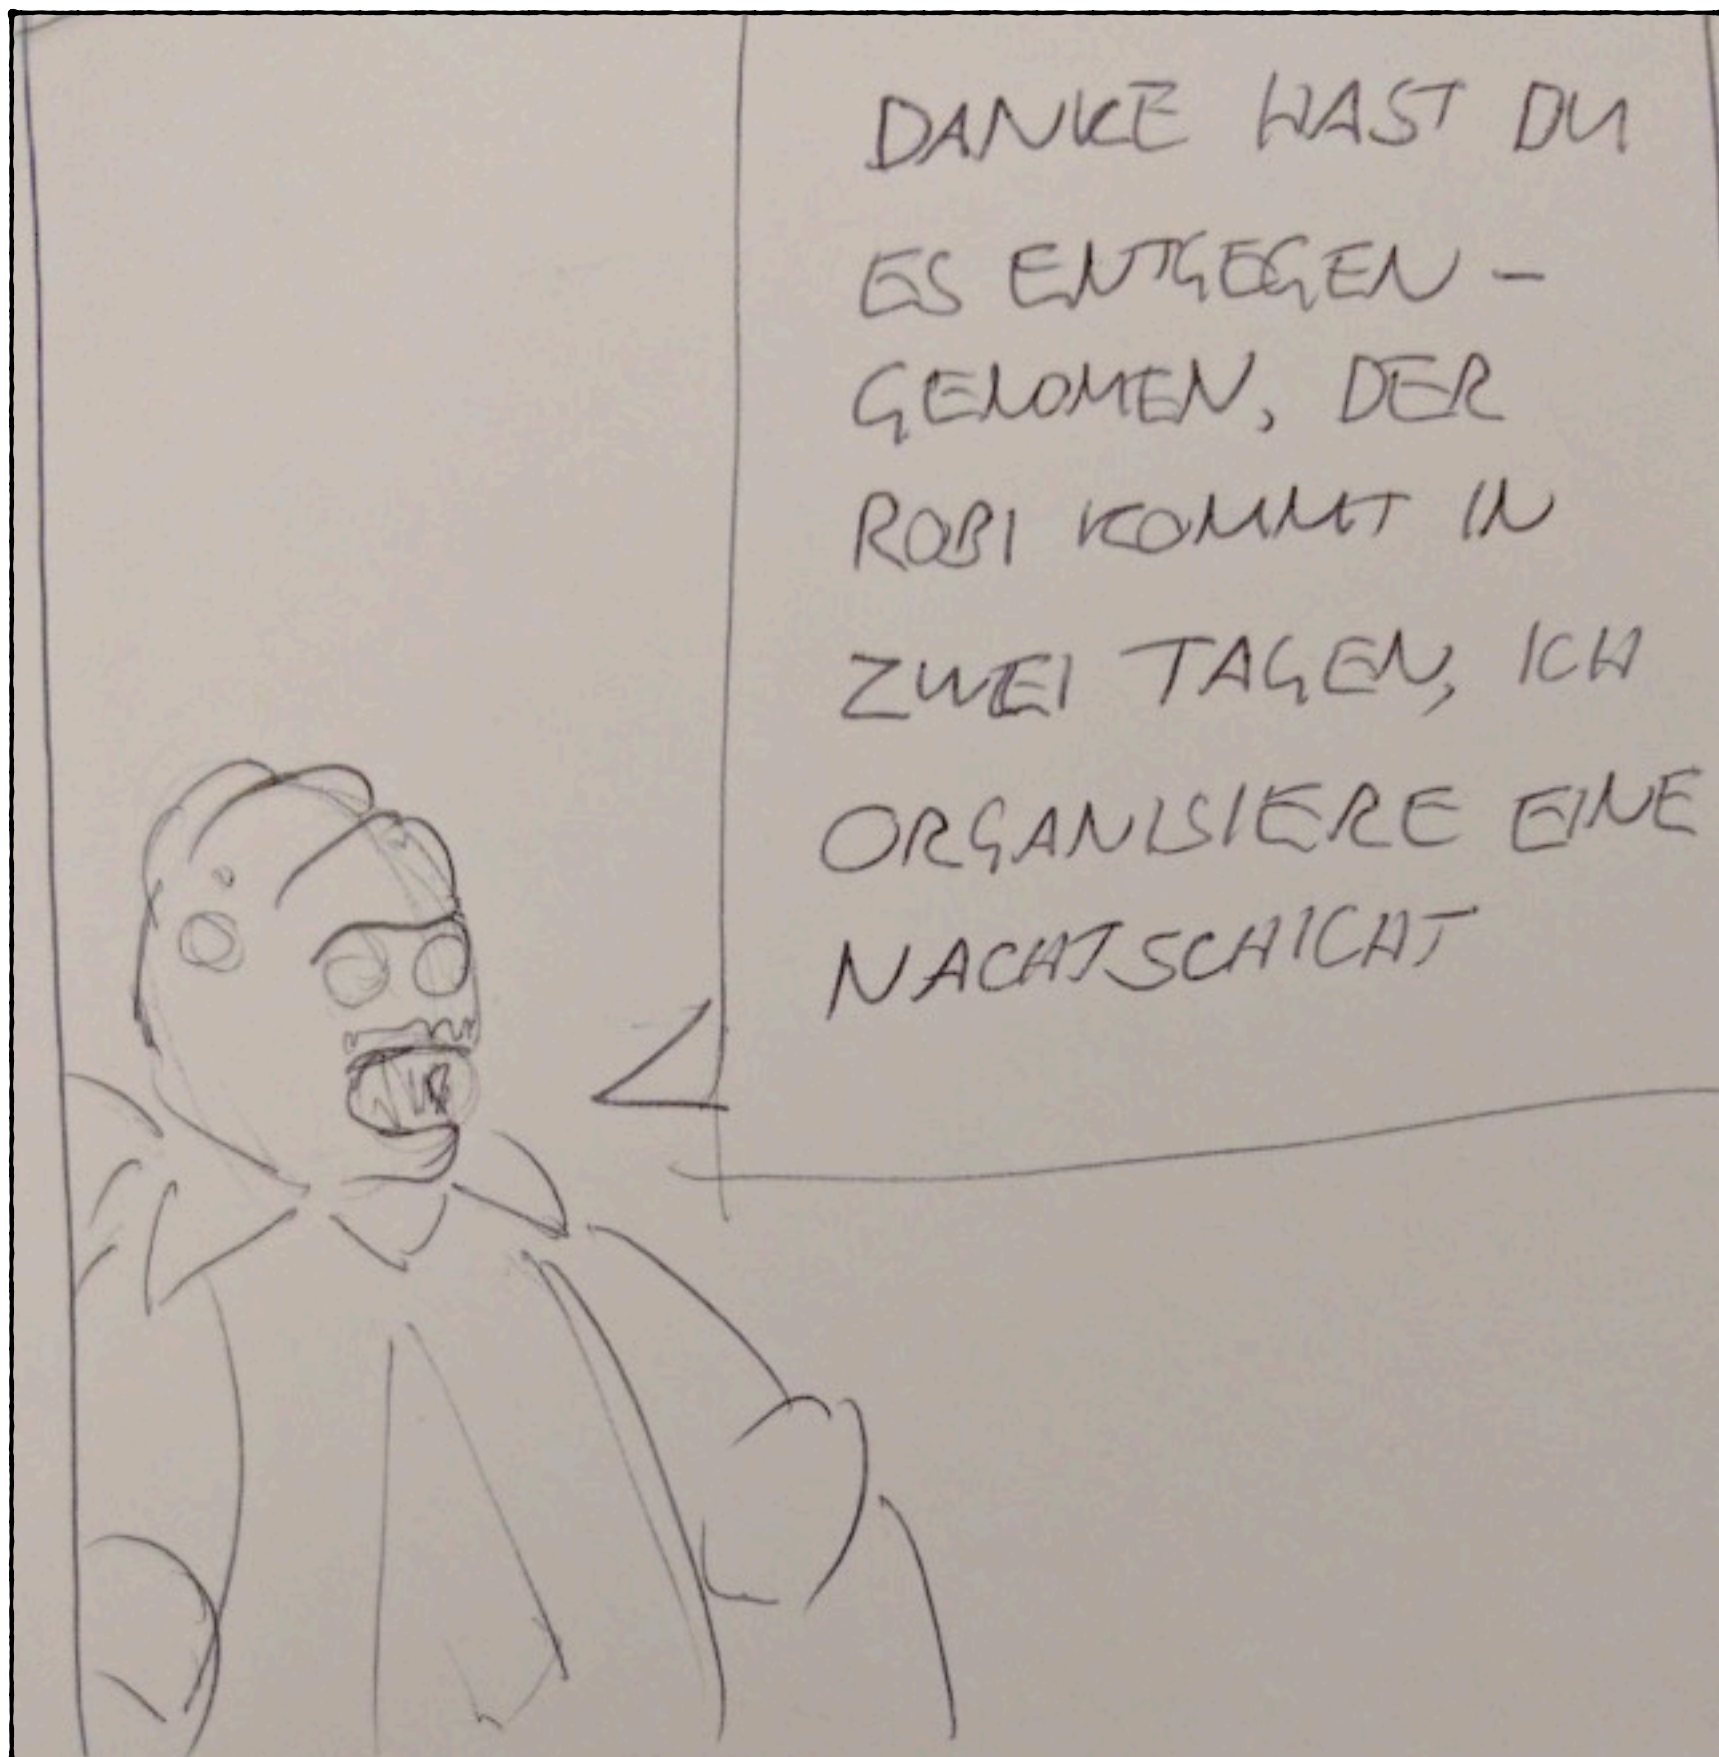 DANKE HAST DU
ES ENTGEGEN-
GENOMEN, DER
ROBI KOMMT IN
ZWEI TAGEN, ICH
ORGANISIERE EINE
NACHTSCHICHT